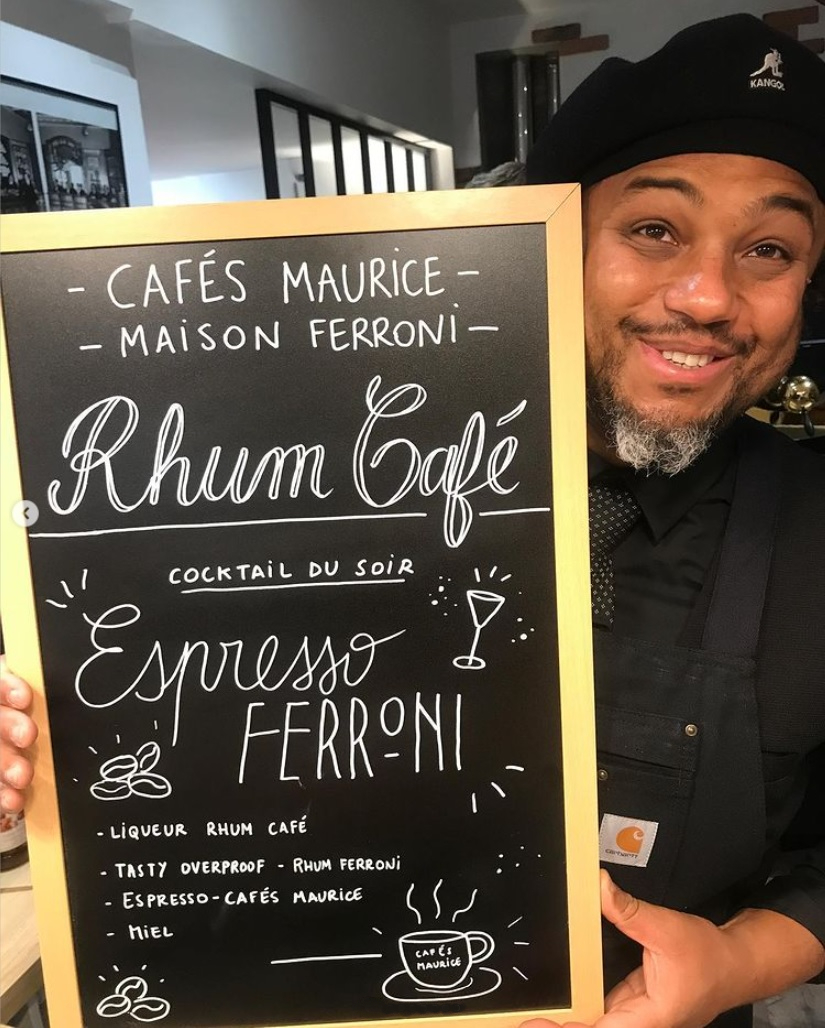 KANGOL
- CAFÉS MAURICE -
- MAISON FERRONI -
Rhum Café
COCKTAIL DU SOIR
Espresso
FERRONI
- LIQUEUR RHUM CAFÉ
- TASTY OVERPROOF - RHUM FERRONI
- ESPRESSO - CAFÉS MAURICE
- MIEL
CAFÉS
MAURICE
carhartt